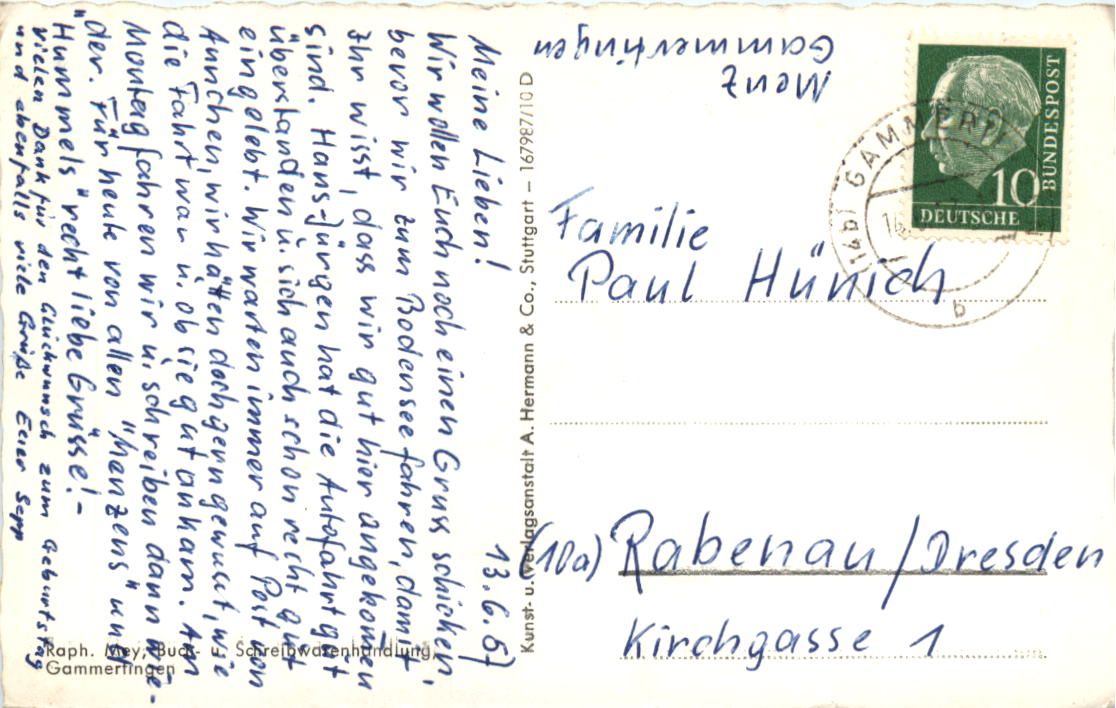 13.6.57
Meine Lieben!
Wir wollen Euch noch einen Gruss schicken,
bevor wir zum Bodensee fahren, damit
Ihr wisst, dass wir gut hier angekommen
sind. Hans-Jürgen hat die Autofahrt gut
überstanden u. sich auch schon recht gut
eingelebt. Wir warten immer auf Post von
Annchen, wir hätten doch gern gewusst, wie
die Fahrt war u. ob sie gut ankam. Am
Montag fahren wir u. schreiben dann wie-
der. Für heute von allen "Menzens" und
"Hummels" recht liebe Grüsse! -
Vielen Dank für den Glückwunsch zum Geburtstag
und ebenfalls viele Grüße Euer Sepp
Raph. Mey, Buch- u. Schreibwarenhandlung,
Gammertingen
Kunst- u. Verlagsanstalt A. Hermann & Co., Stuttgart – 167987/10 D
Menz
Gammertingen
BUNDESPOST
10
DEUTSCHE
(14b) GAMMERTI
b
Familie
Paul Hünich
(10a) Rabenau/Dresden
Kirchgasse 1